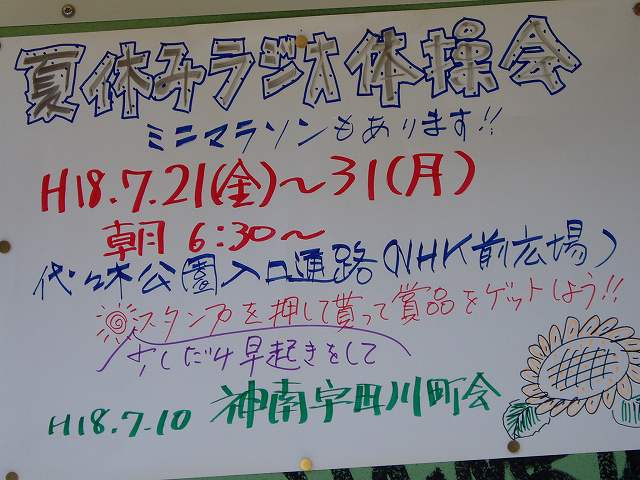 夏休みラジオ体操会
ミニマラソンもあります!!
H18.7.21(金)～31(月)
朝6:30～
代々木公園入口通路(NHK前広場)
スタンプを押して貰って賞品をゲットしよう!!
少しだけ早起きをして
H18.7.10 神南宇田川町会